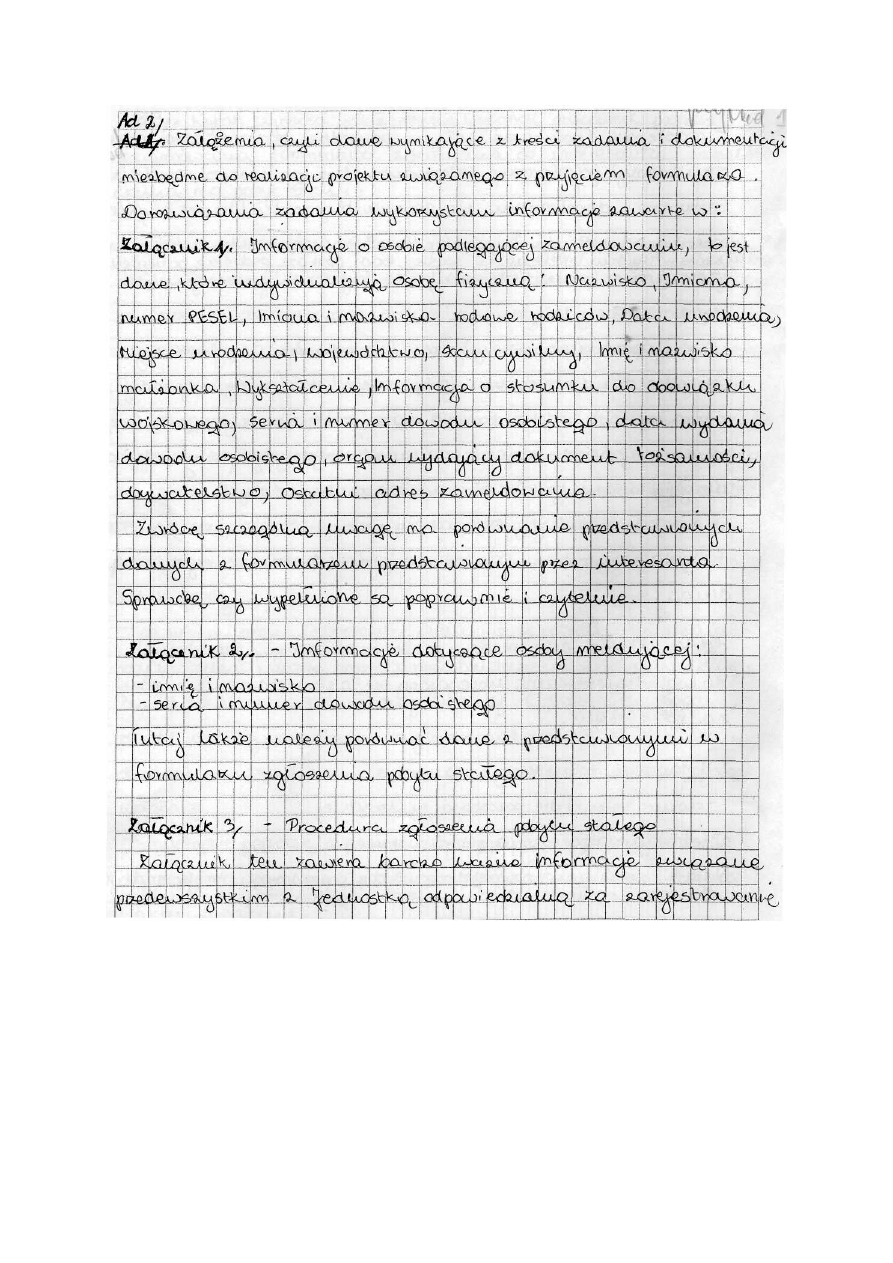 przykład 1
Ad 2/
Ad 1/. Założenia, czyli dane wynikające z treści zadania i dokumentacji
niezbędne do realizacji projektu związanego z przyjęciem formularza.
Do rozwiązania zadania wykorzystam informacje zawarte w:
Załącznik 1/. Informacje o osobie podlegającej zameldowaniu, to jest
dane, które indywidualizują osobę fizyczną: Nazwisko, Imiona,
numer PESEL, Imiona i nazwiska rodowe rodziców, Data urodzenia,
Miejsce urodzenia, województwo, stan cywilny, Imię i nazwisko
małżonka, Wykształcenie, Informacja o stosunku do obowiązku
wojskowego, seria i numer dowodu osobistego, data wydania
dowodu osobistego, organ wydający dokument tożsamości,
obywatelstwo, ostatni adres zameldowania.
Zwrócę szczególną uwagę na porównanie przedstawionych
danych z formularzem przedstawionym przez interesanta.
Sprawdzę czy wypełnione są poprawnie i czytelnie.
Załącznik 2/. - Informacje dotyczące osoby meldującej:
- imię i nazwisko
- seria i numer dowodu osobistego
Tutaj także należy porównać dane z przedstawionymi w
formularzu zgłoszenia pobytu stałego.
Załącznik 3/ - Procedura zgłoszenia pobytu stałego
Załącznik ten zawiera bardzo ważne informacje związane
przedewszystkim z Jednostką odpowiedzialną za zarejestrowanie